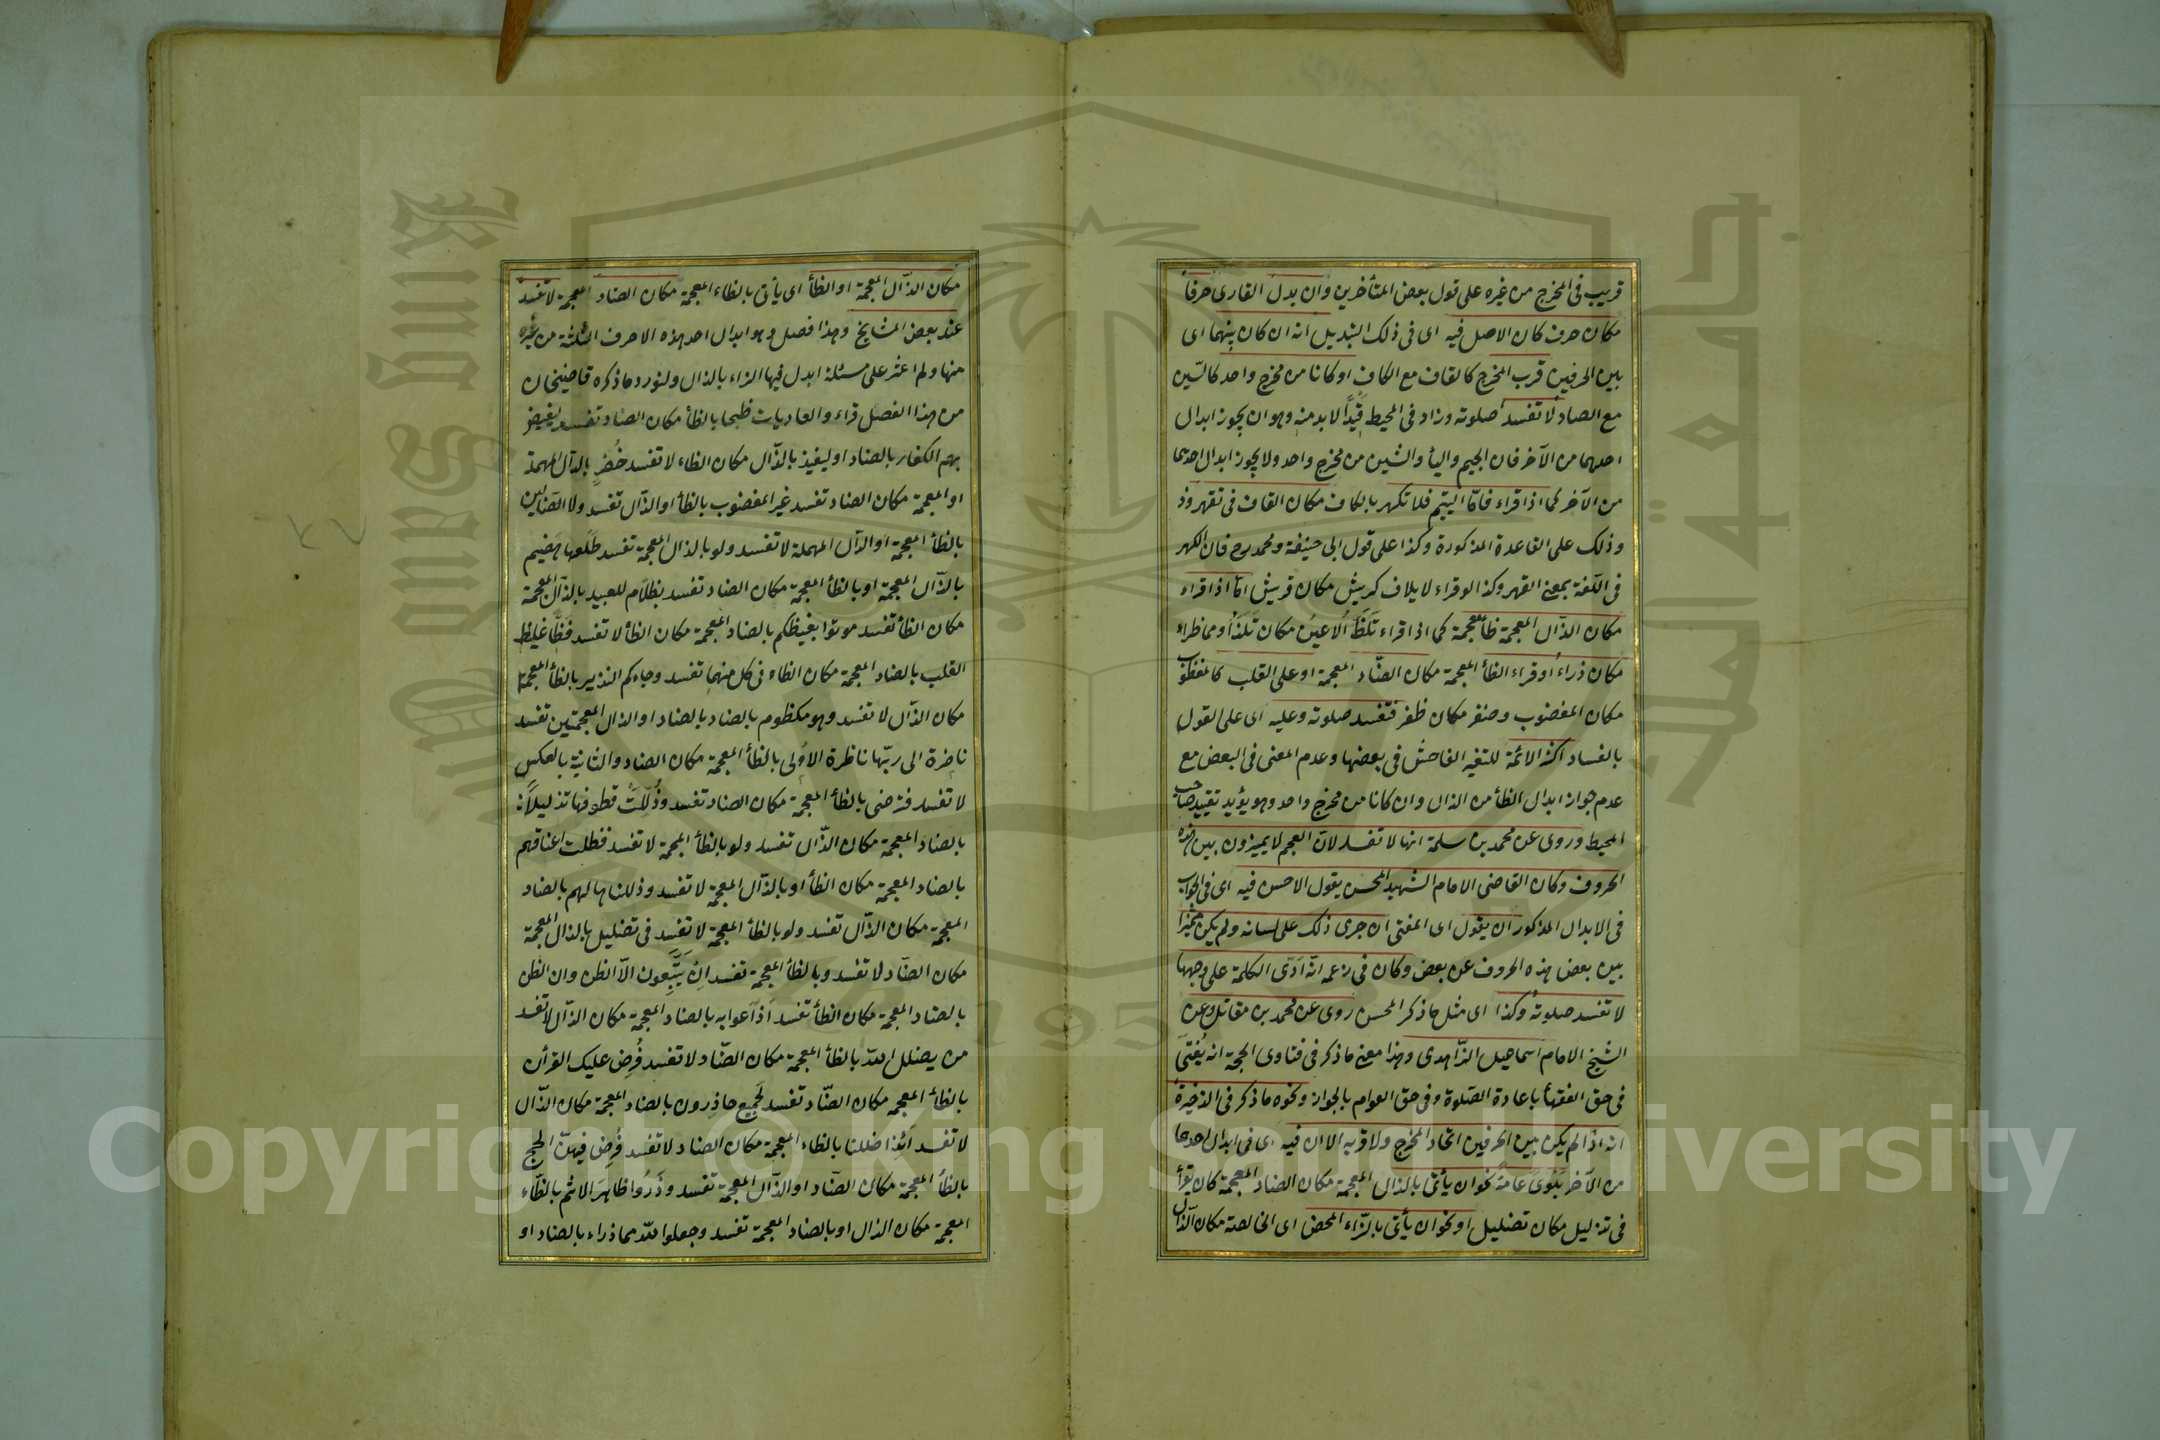 قريب فى المخرج من غيره على قول بعض المتأخرين وان بدل القارى حرفا
مكان حرف كان الاصل فيه اى فى ذلك التبديل انه ان كان بينهما اى
بين الحرفين قرب المخرج كالقاف مع الكاف او كانا من مخرج واحد كالسّين
مع الصاد لا تفسد صلوته وزاد فى المحيط قيدًا لا بد منه وهو ان يجوز ابدال
احدهما من الآخر فان الجيم واليأ والشين من مخرج واحد ولا يجوز ابدال احديهما
من الآخر كما اذا قراء فامّا اليتيم فلا تكهر بالكاف مكان القاف فى تقهر وذ
وذلك على القاعدة المذكورة وكذا على قول ابى حنيفة ومحمد رح فان الكهر
فى اللّغة بمعنى القهر وكذا لو قراء لايلاف كريش مكان قريش امّا اذا قراء
مكان الذّال المعجمة ظأ معجمة كما اذا قراء تلظّ الاعين مكان تلذّ او مما ظراء
مكان ذراء او قراء الظأ المعجمة مكان الضّاد المعجمة او على القلب كالمغظوب
مكان المغضوب وضفر مكان ظفر فتفسد صلوته وعليه اى على القول
بالفساد اكثر الائمّة للتغير الفاحش فى بعضها وعدم المعنى فى البعض مع
عدم جواز ابدال الظأ من الذال وان كانا من مخرج واحد وهو يؤيد تقييد صاحب
المحيط وروى عن محمد بن سلمة انها لا تفسد لانّ العجم لا يميزون بين هذه
الحروف وكان القاضى الامام الشهيد المحسن يقول الاحسن فيه اى فى الجواب
فى الابدال المذكور ان يقول اى المفتى ان جرى ذلك على لسانه ولم يكن مميّزا
بين بعض هذه الحروف عن بعض وكان فى زعمه انّه ادّى الكلمة على وجهها
لا تفسد صلوته وكذا اى مثل ما ذكر المحسن روى عن محمد بن مقاتل وعن
الشيخ الامام اسماعيل الزّاهدى وهذا معنى ما ذكر فى فتاوى الحجة انه يُفتى
فى حق الفقهأ باعادة الصّلوة وفى حق العوام بالجواز ونحوه ما ذكر فى الذخيرة
انه اذا لم يكن بين الحرفين اتحاد المخرج ولا قربه الا ان فيه اى فى ابدال احدهما
من الآخر بَلْوَى عامّة نحو ان يأتى بالذال المعجمة مكان الضاد المعجمة كان يقرأ
فى تذليل مكان تضليل او نحو ان يأتى بالزّاء المحض اى الخالصة مكان الذّال
مكان الذّال المعجمة او الظأ اى يأتى بالظاء المعجمة مكان الضاد المعجمة لا تفسد
عند بعض المشايخ وهذا فصل وهو ابدال احد هذه الاحرف الثلثة من غيره
منها ولم اعثر على مسئلة ابدل فيها الزاء بالذال ولنورد ما ذكره قاضيخان
من هذا الفصل قراء والعاديات ظبحا بالظأ مكان الضاد تفسد ليغيض
بهم الكفار بالضاد او ليغيذ بالذّال مكان الظاء لا تفسد خُضُرٍ بالدّال المهملة
او المعجمة مكان الضاد تفسد غير المغضوب بالظأ او الذّال تفسد ولا الضّالين
بالظأ المعجمة او الدّال المهملة لا تفسد ولو بالذال المعجمة تفسد طلعها هضيم
بالذّال المعجمة او بالظأ المعجمة مكان الضاد تفسد بظلاّم للعبيد بالذّال المعجمة
مكان الظأ تفسد موتوا بغيظكم بالضاد المعجمة مكان الظأ لا تفسد فظًّا غليظ
القلب بالضاد المعجمة مكان الظاء فى كل منهما تفسد وجاءكم النذير بالظأ المعجمة
مكان الذّال لا تفسد وهو مكظوم بالضاد بالضاد او الذال المعجمتين تفسد
ناضرة الى ربّها ناظرة الاولى بالظأ المعجمة مكان الضاد والثانية بالعكس
لا تفسد فترضى بالظأ المعجمة مكان الضاد تفسد وذُلّلت قطوفها تذليلاً
بالضاد المعجمة مكان الذّال تفسد ولو بالظأ المعجمة لا تفسد فظلت اعناقهم
بالضاد المعجمة مكان الظأ او بالذّال المعجمة لا تفسد وذللناها لهم بالضاد
المعجمة مكان الذّال تفسد ولو بالظأ المعجمة لا تفسد فى تضليل بالذال المعجمة
مكان الضّاد لا تفسد وبالظأ المعجمة تفسد ان يتّبعون الاّ الظن وان الظن
بالضاد المعجمة مكان الظأ تفسد اذاعوا به بالضاد المعجمة مكان الذّال لا تفسد
من يضلل اللّه بالظأ المعجمة مكان الضّاد لا تفسد فُرِض عليك القرأن
بالظأ المعجمه مكان الضّاد تفسد لجميع حاذرون بالضاد المعجمة مكان الذّال
لا تفسد أئذا ضللنا بالظاء المعجمة مكان الضاد لا تفسد فُرِض فيهنّ الحج
بالظأ المعجمة مكان الضّاد او الذّال المعجمة تفسد وذَرُوا ظاهرَ الاثم بالظّاء
المعجمة مكان الذال او بالضاد المعجمة تفسد وجعلوا للّه مما ذراء بالضاد او
King Saud University
جامعة الملك
195
Copyright © King Saud University